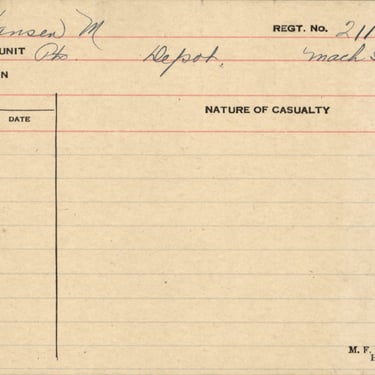 Hansen M REGT. No. 211
UNIT Pte Depot, Mach
N
DATE NATURE OF CASUALTY
M. F.